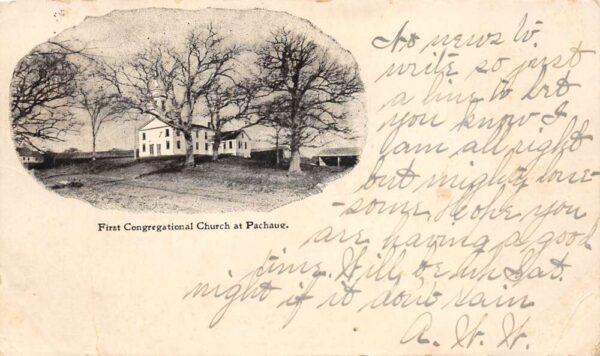 First Congregational Church at Pachaug.
No news to
write so just
a line to let
you know I
am all right
but mighty lone-
-some Hope you
are having a good
time. Will be up Sat.
night if it don't rain
A. W. W.